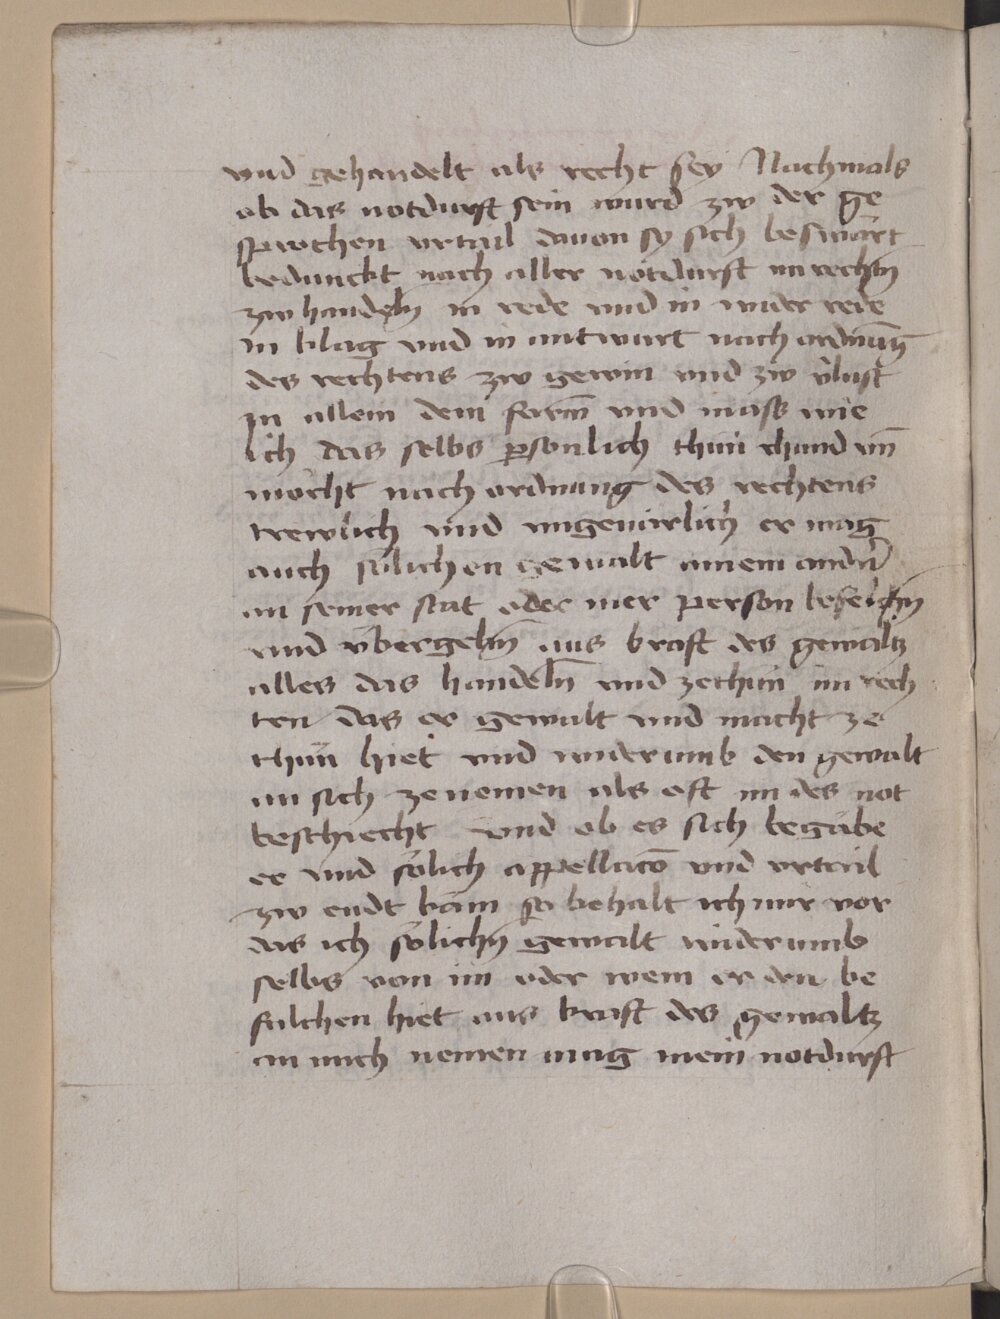 vnd gehandelt als recht sey Nachmals
ob das notdurft sein wurd zw der ge
sprochen vrtail dauon sy sich beswart
bedunckt nach aller notdurft im rechtn̄
zw handeln in rede vnd in wider rede
in klag vnd in antwurt nach ordnūg
des rechtens zw gewin vnd zw v̄lust
in allem dem form̄ vnd mass wie
ich das selbs p̱sonlich thun chund vn̄
möcht nach ordnung des rechtens
trewlich vnd vngeuärlich er mag
auch solichen gewalt ainem andn̄
an seiner stat oder mer person befelhn̄
vnd vbergebn̄ aus kraft des gewaltz
alles das handeln̄ vnd zethun im rech
ten das er gewalt vnd macht ze
thün hiet vnd widerumb den gewalt
an sich zenemen als oft im des not
beschiecht vnd ob es sich begäbe
ee vnd sölich appellacō vnd vrtail
zw endt käm so behalt ich mir vor
das ich sölichn̄ gewalt widerumb
selbs von im oder wem er den be
folchen hiet aus kraft des gewaltz
an mich nemen mag mein notdurft